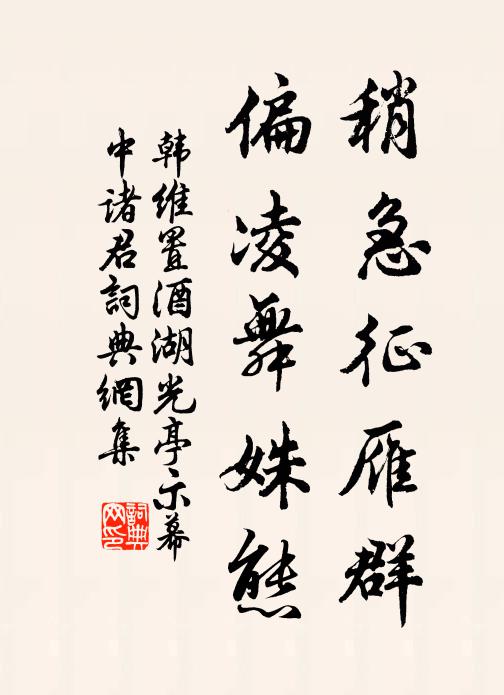 稍急征雁群
偏凌舞姝態
韩維置酒湖光亭示幕
中诸君詞典網集
詞典
网印